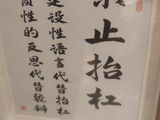 禁止抬杠
建设性语言代替抬杠
质性的反思代替狡辩